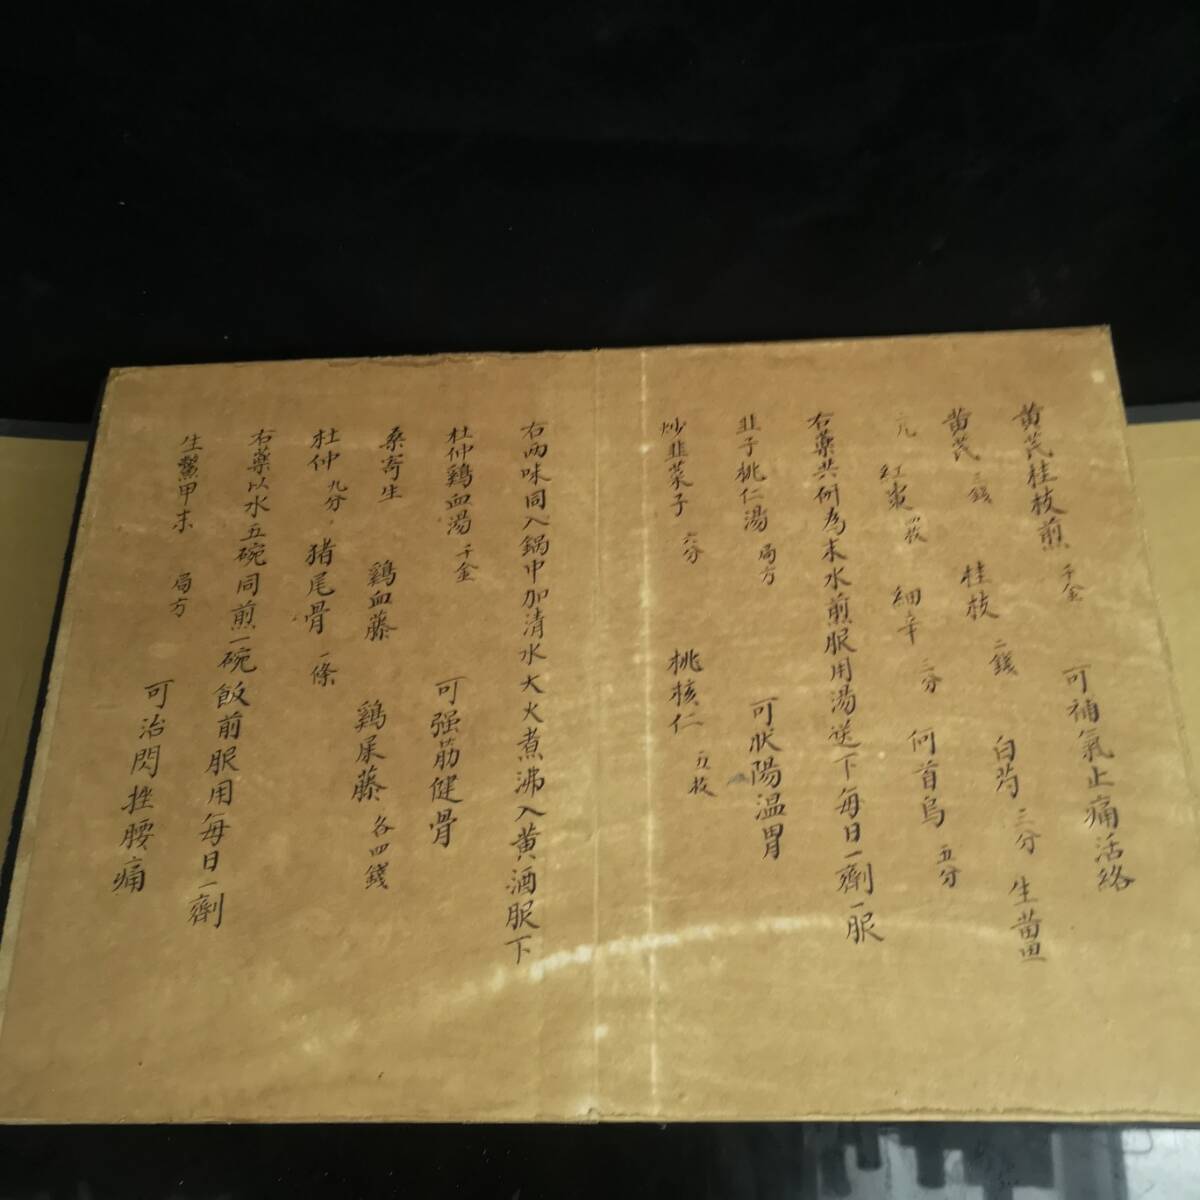 黄芪桂枝煎 千金 可補氣止痛活絡
黄芪 三錢 桂枝 二錢 白芍 三分 生薑
九 紅棗 四枚 細辛 三分 何首烏 五分
右藥共例為末水煎服用湯送下每日一劑一服
韭子桃仁湯 局方 可狀陽温胃
炒韭菜子 六分 桃核仁 五枚
右两味同入鍋中加清水大火煮沸入黄酒服下
杜仲鷄血湯 千金 可强筋健骨
桑寄生 鷄血藤 鷄屎藤 各四錢
杜仲 九分 猪尾骨 一條
右藥以水五碗同煎一碗飯前服用每日一劑
生鱉甲末 局方 可治閃挫腰痛